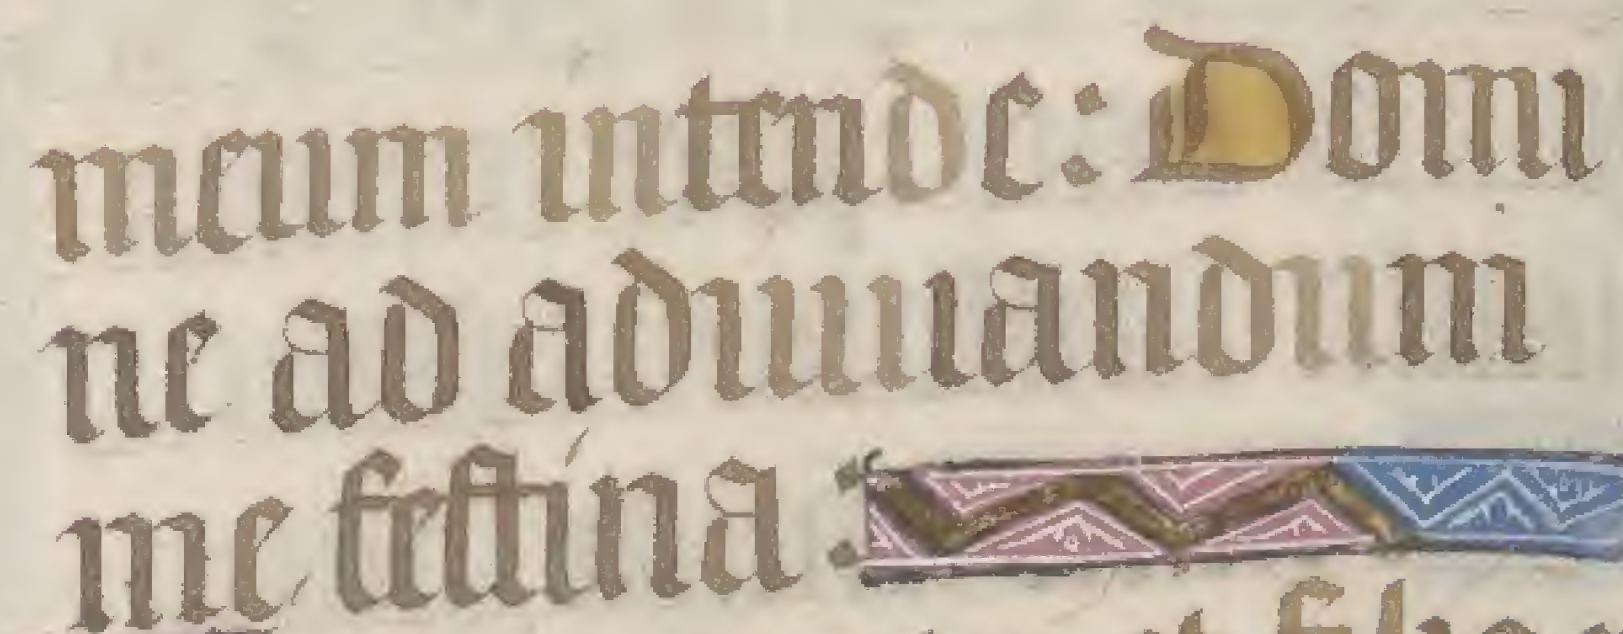 meum intende: Domi
ne ad adiuuandum
me festina: